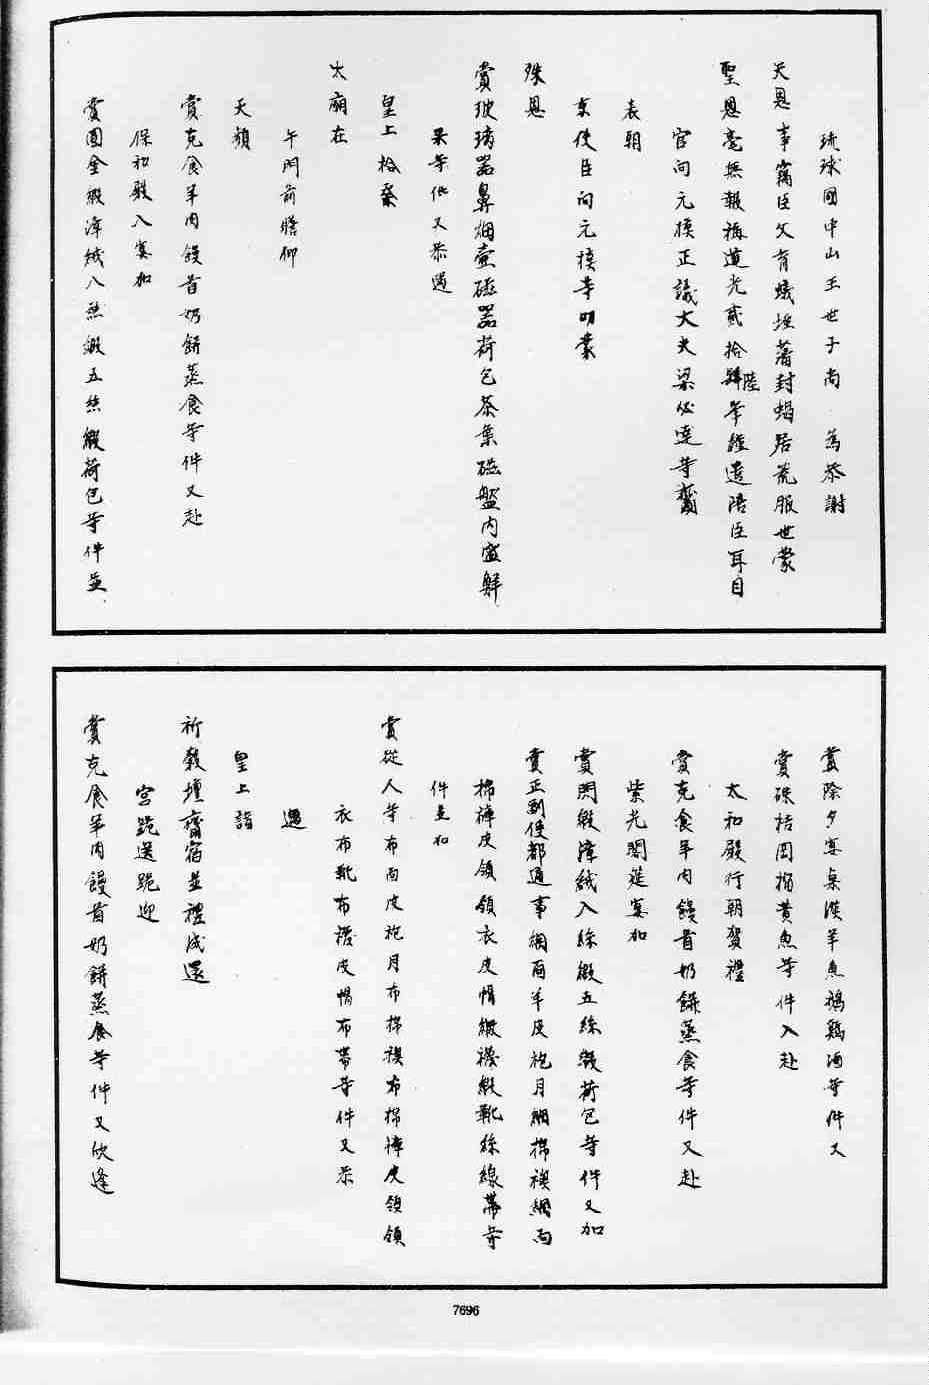 琉球國中山王世子尚　為恭謝
天恩事竊臣父育蟻垤藩封蝸居荒服世蒙
聖恩毫無報稱道光貳拾肆陸年謹遣陪臣耳目
官向元模正議大夫梁必達等齎
表朝
京使臣向元模等叩蒙
殊恩
賞玻璃器鼻烟壺磁器荷包茶葉磁盤內盛鮮
菓等件又恭遇
皇上拾祭
太廟在
午門前瞻仰
天顏
賞克食羊肉饅首奶餅蒸食等件又赴
保和殿入宴加
賞回金緞漳絨八絲緞五絲緞荷包等件並
賞除夕宴桌湛羊魚鵝鷄酒等件又
賞硃桔囘榴黄魚等件入赴
太和殿行朝賀禮
賞克食羊肉饅首奶餅蒸食等件又赴
紫光閣筵宴加
賞閃緞漳絨入絲緞五絲緞荷包等件又加
賞正副使都通事綢面羊皮袍月綢棉襖綢面
棉褲皮領領衣皮帽緞襪緞靴絲線帶等
件並加
賞從人等布面皮袍月布棉襖布棉褲皮領領
衣布靴布襪皮帽布帶等件又恭
遇
皇上詣
祈穀壇齋宿並禮成還
宮跪送跪迎
賞克食羊肉饅首奶餅蒸食等件又欣逢
7696